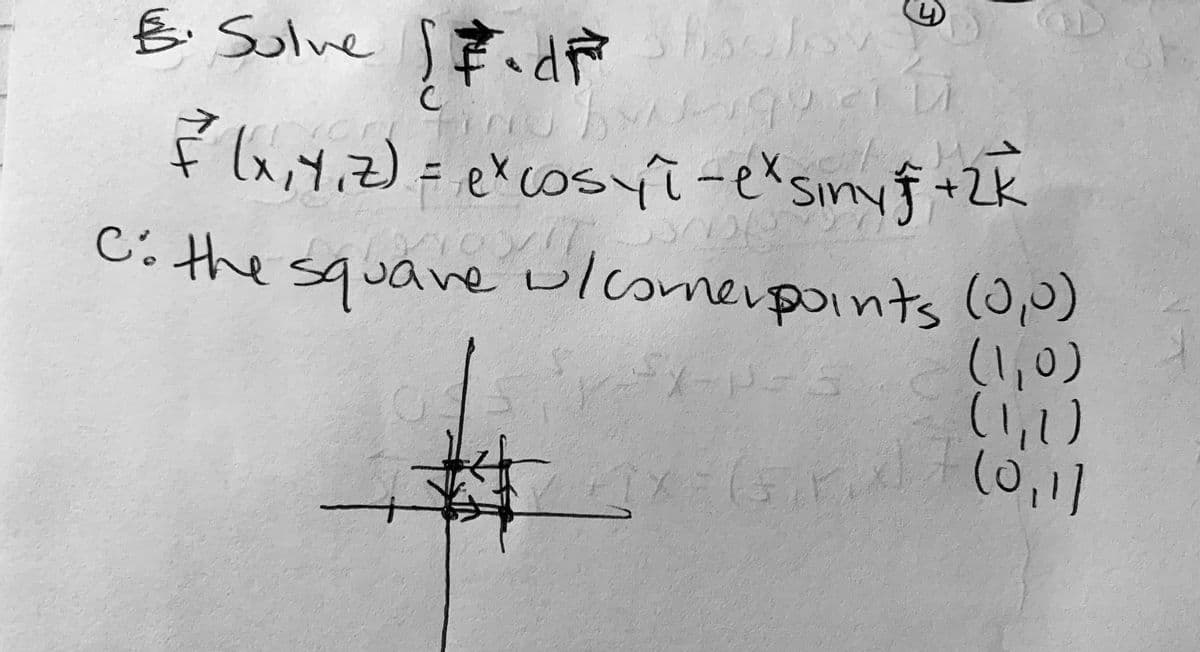 ④
B. Solve ∫ F⃗ · dr⃗
C
F⃗ (x,y,z) = eˣcosy î - eˣsiny ĵ + 2k⃗
C: the square w/ cornerpoints (0,0)
(1,0)
(1,1)
(0,1)